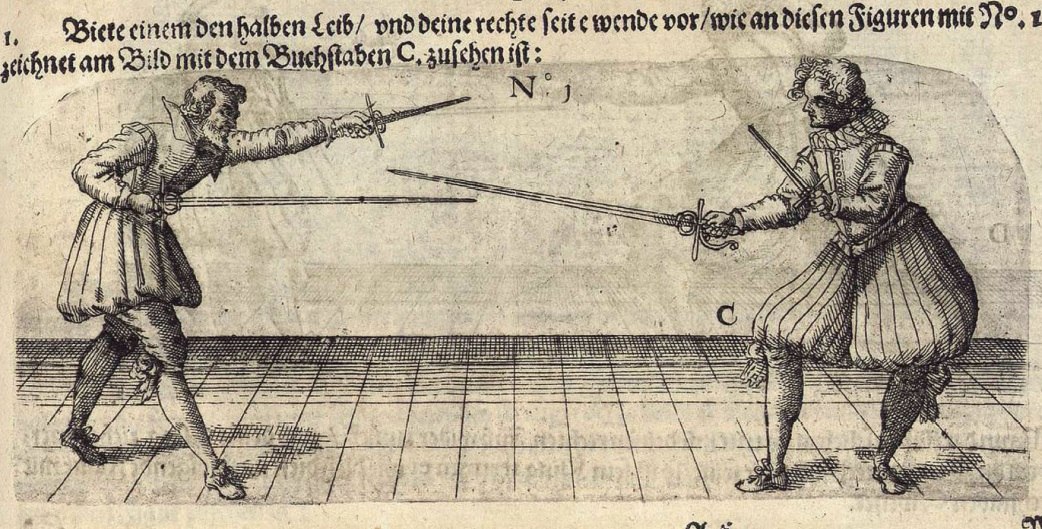 1. Biete einem den halben Leib/ vnd deine rechte seite wende vor/wie an diesen Figuren mit No. 1
zeichnet am Bild mit dem Buchstaben C. zusehen ist:
No 1
C